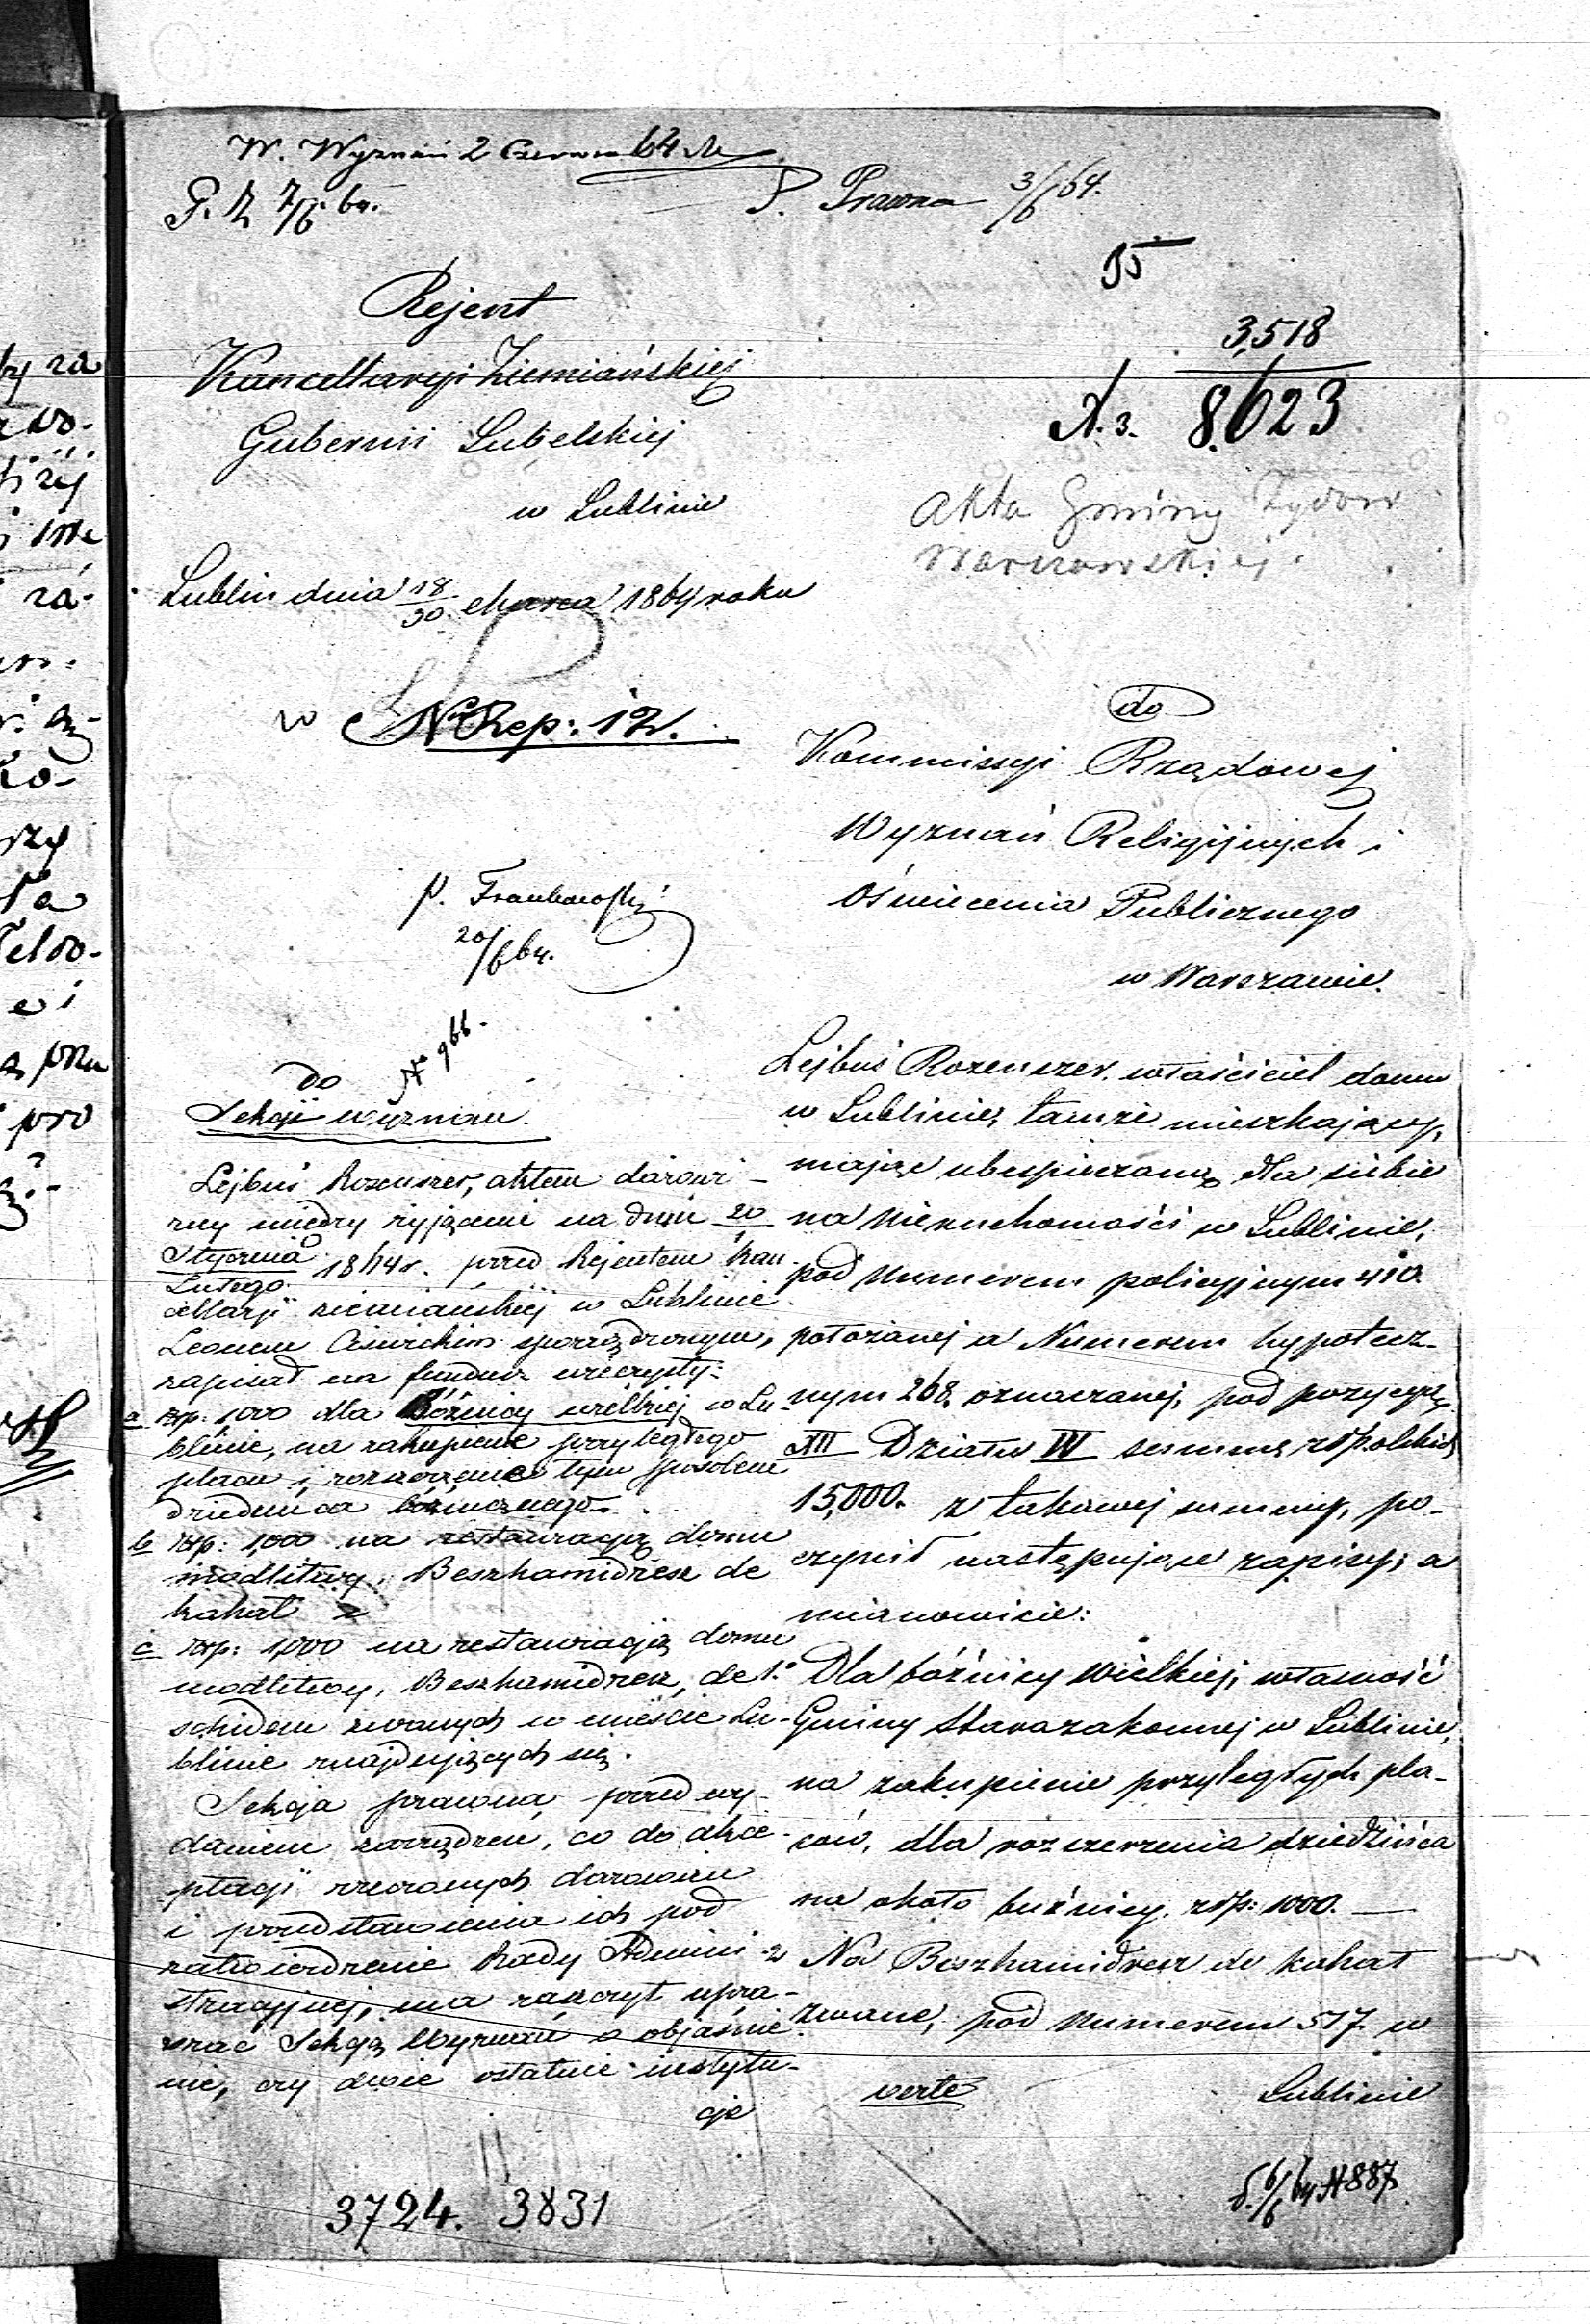 W. Wyznań 2 Czerwca 64
P. 7/6 64.
S. Prawna 3/6 64.
35
Rejent
Kancellaryi Ziemiańskiej
Gubernii Lubelskiej
w Lublinie
3,518
8,623
Akta Gminy Żydow
Warszawskiej
Lublin dnia 18/30 Marca 1864 roku
w N Rep: 12.
do
Kommissyi Rządowej
Wyznań Religijnych i
Oświecenia Publicznego
w Warszawie.
p.
20/6 64.
N 966.
do
Sekcji Wyznań.
Lejbuś Rozenszer, aktem darowi-
zny między żyjącemi na dniu 20
Stycznia
Lutego 1864 r. przed Rejentem Kan-
cellarji ziemiańskiej w Lublinie
Leonem sporządzonym,
zapisał na fundusz wieczysty:
a złp: 1,000 dla Bóżnicy wielkiej w Lu-
blinie, na zakupienie przyległego
placu i rozszerzenie tym sposobem
dziedzińca bóżnicznego.
b złp: 1,000 na restauracją domu
modlitwy, Beszhamidresz de
kahał
c złp: 1,000 na restauracją domu
modlitwy, Beszhamidresz, de
zwanych w mieście Lu-
blinie znajdujących się.
Sekcja prawna, przed wy-
daniem zarządzeń, co do akce-
ptacji rzeczonych darowizn
i przedstawienia ich pod
zatwierdzenie Rady Admini-
stracyjnej, ma zaszczyt upra-
szać Sekcją Wyznań o objaśnie-
nie, czy dwie ostatnie instytu-
cje
Lejbuś Rozenszer. właściciel domu
w Lublinie, tamże mieszkający,
mając ubespieczoną dla siebie
na Nieruchomości w Lublinie,
pod Numerem policyjnym 410.
położonej a Numerem hypotecz-
nym 268. oznaczonej, pod pozycyą
XII Działu IV summę złpolskich
15,000. z takowej summy, po-
czynił następujące zapisy; a
mianowicie:
1.° Dla bóźnicy Wielkiej, własność
Gminy Starozakonnej w Lublinie,
na zakupienie przyległych pla-
ców, dla rozszerzenia dziedzińca
na około bużnicy. złp: 1000. —
2 Na Beszhamidresz de kahał
zwane, pod Numerem 517 w
verte
Lublinie
3724. 3831